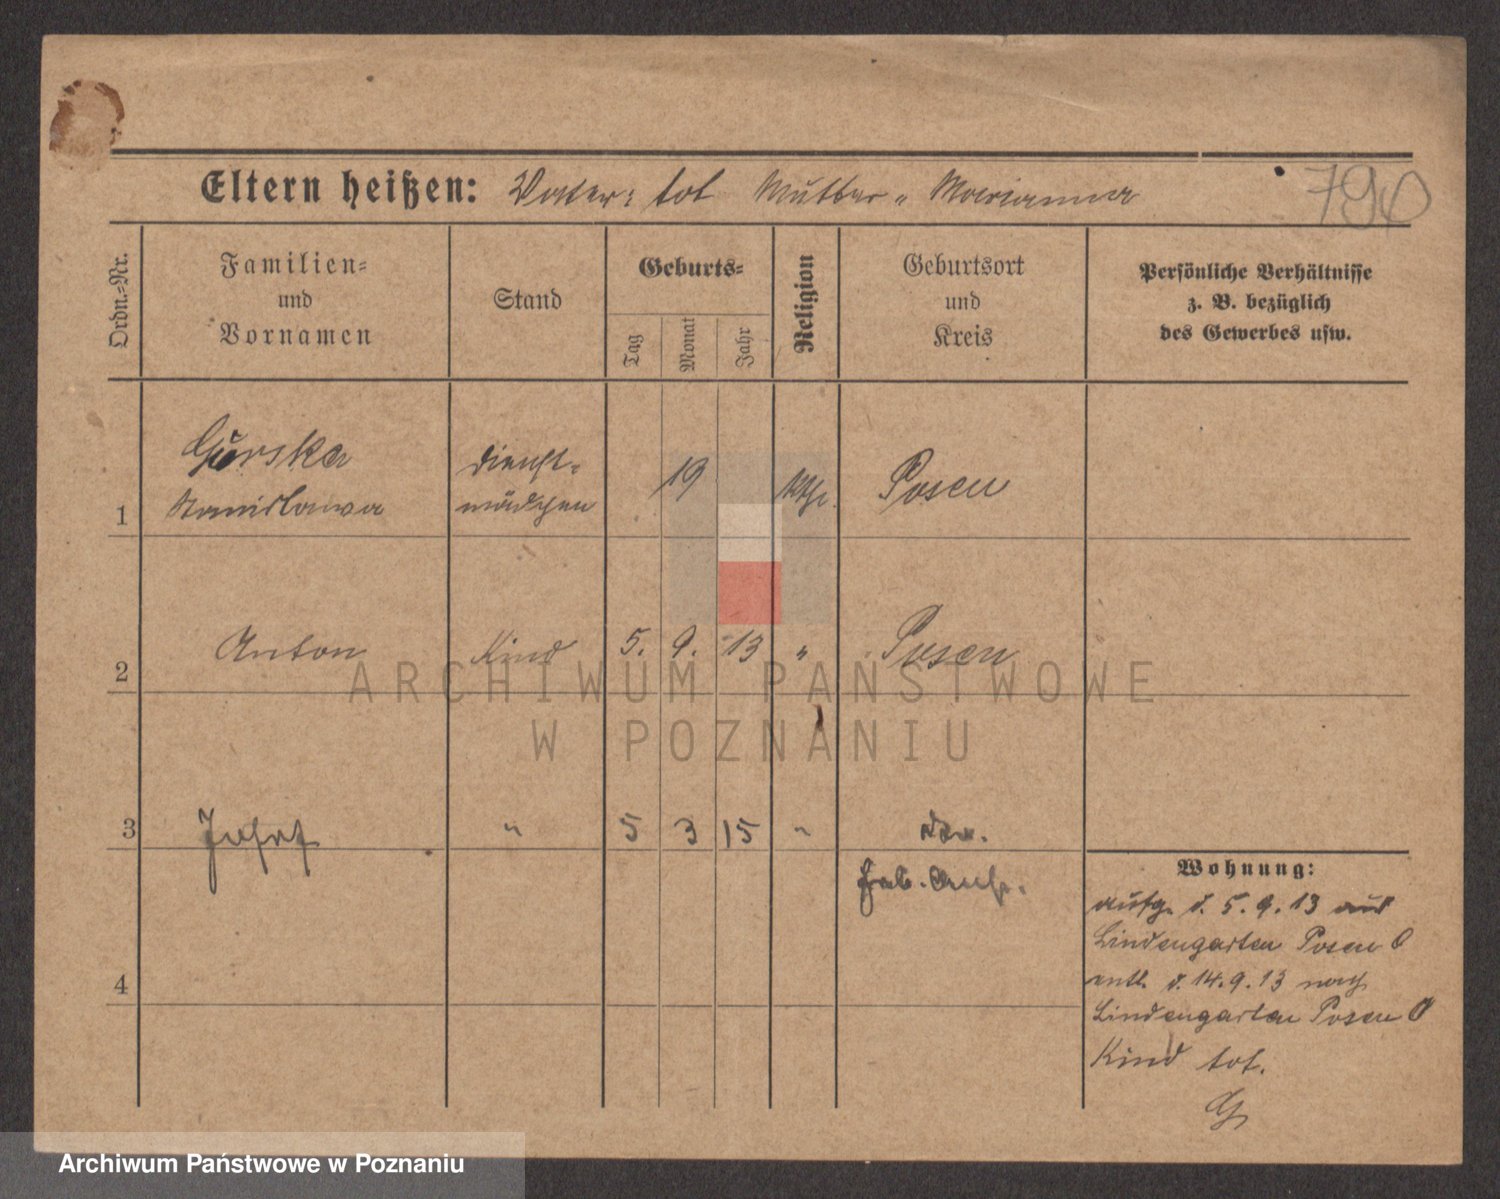 Eltern heißen: Vater: tot Mutter: Marianna
790
Ordn.-Nr.
Familien-
und
Vornamen
Stand
Geburts-
Tag
Monat
Jahr
Religion
Geburtsort
und
Kreis
Persönliche Verhältnisse
z. B. bezüglich
des Gewerbes usw.
1
Gurska
Stanislawa
Dienst-
mädchen
19
kth.
Posen
2
Anton
Kind
5. 9. 13
"
Posen
ARCHIWUM PAŃSTWOWE
W POZNANIU
3
Josef
"
5 3 15
"
4
Wohnung:
aufg. d. 5. 9. 13 aus
Lindengarten Posen O
entl. d. 14. 9. 13 nach
Lindengarten Posen O
Kind tot.
Archiwum Państwowe w Poznaniu